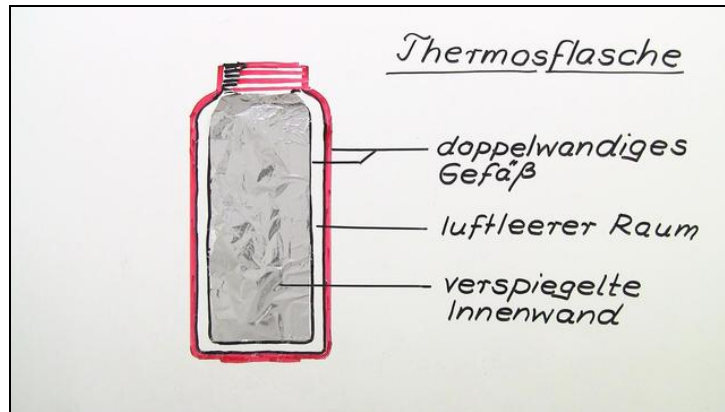 Thermosflasche
doppelwandiges
Gefäß
luftleerer Raum
verspiegelte
Innenwand